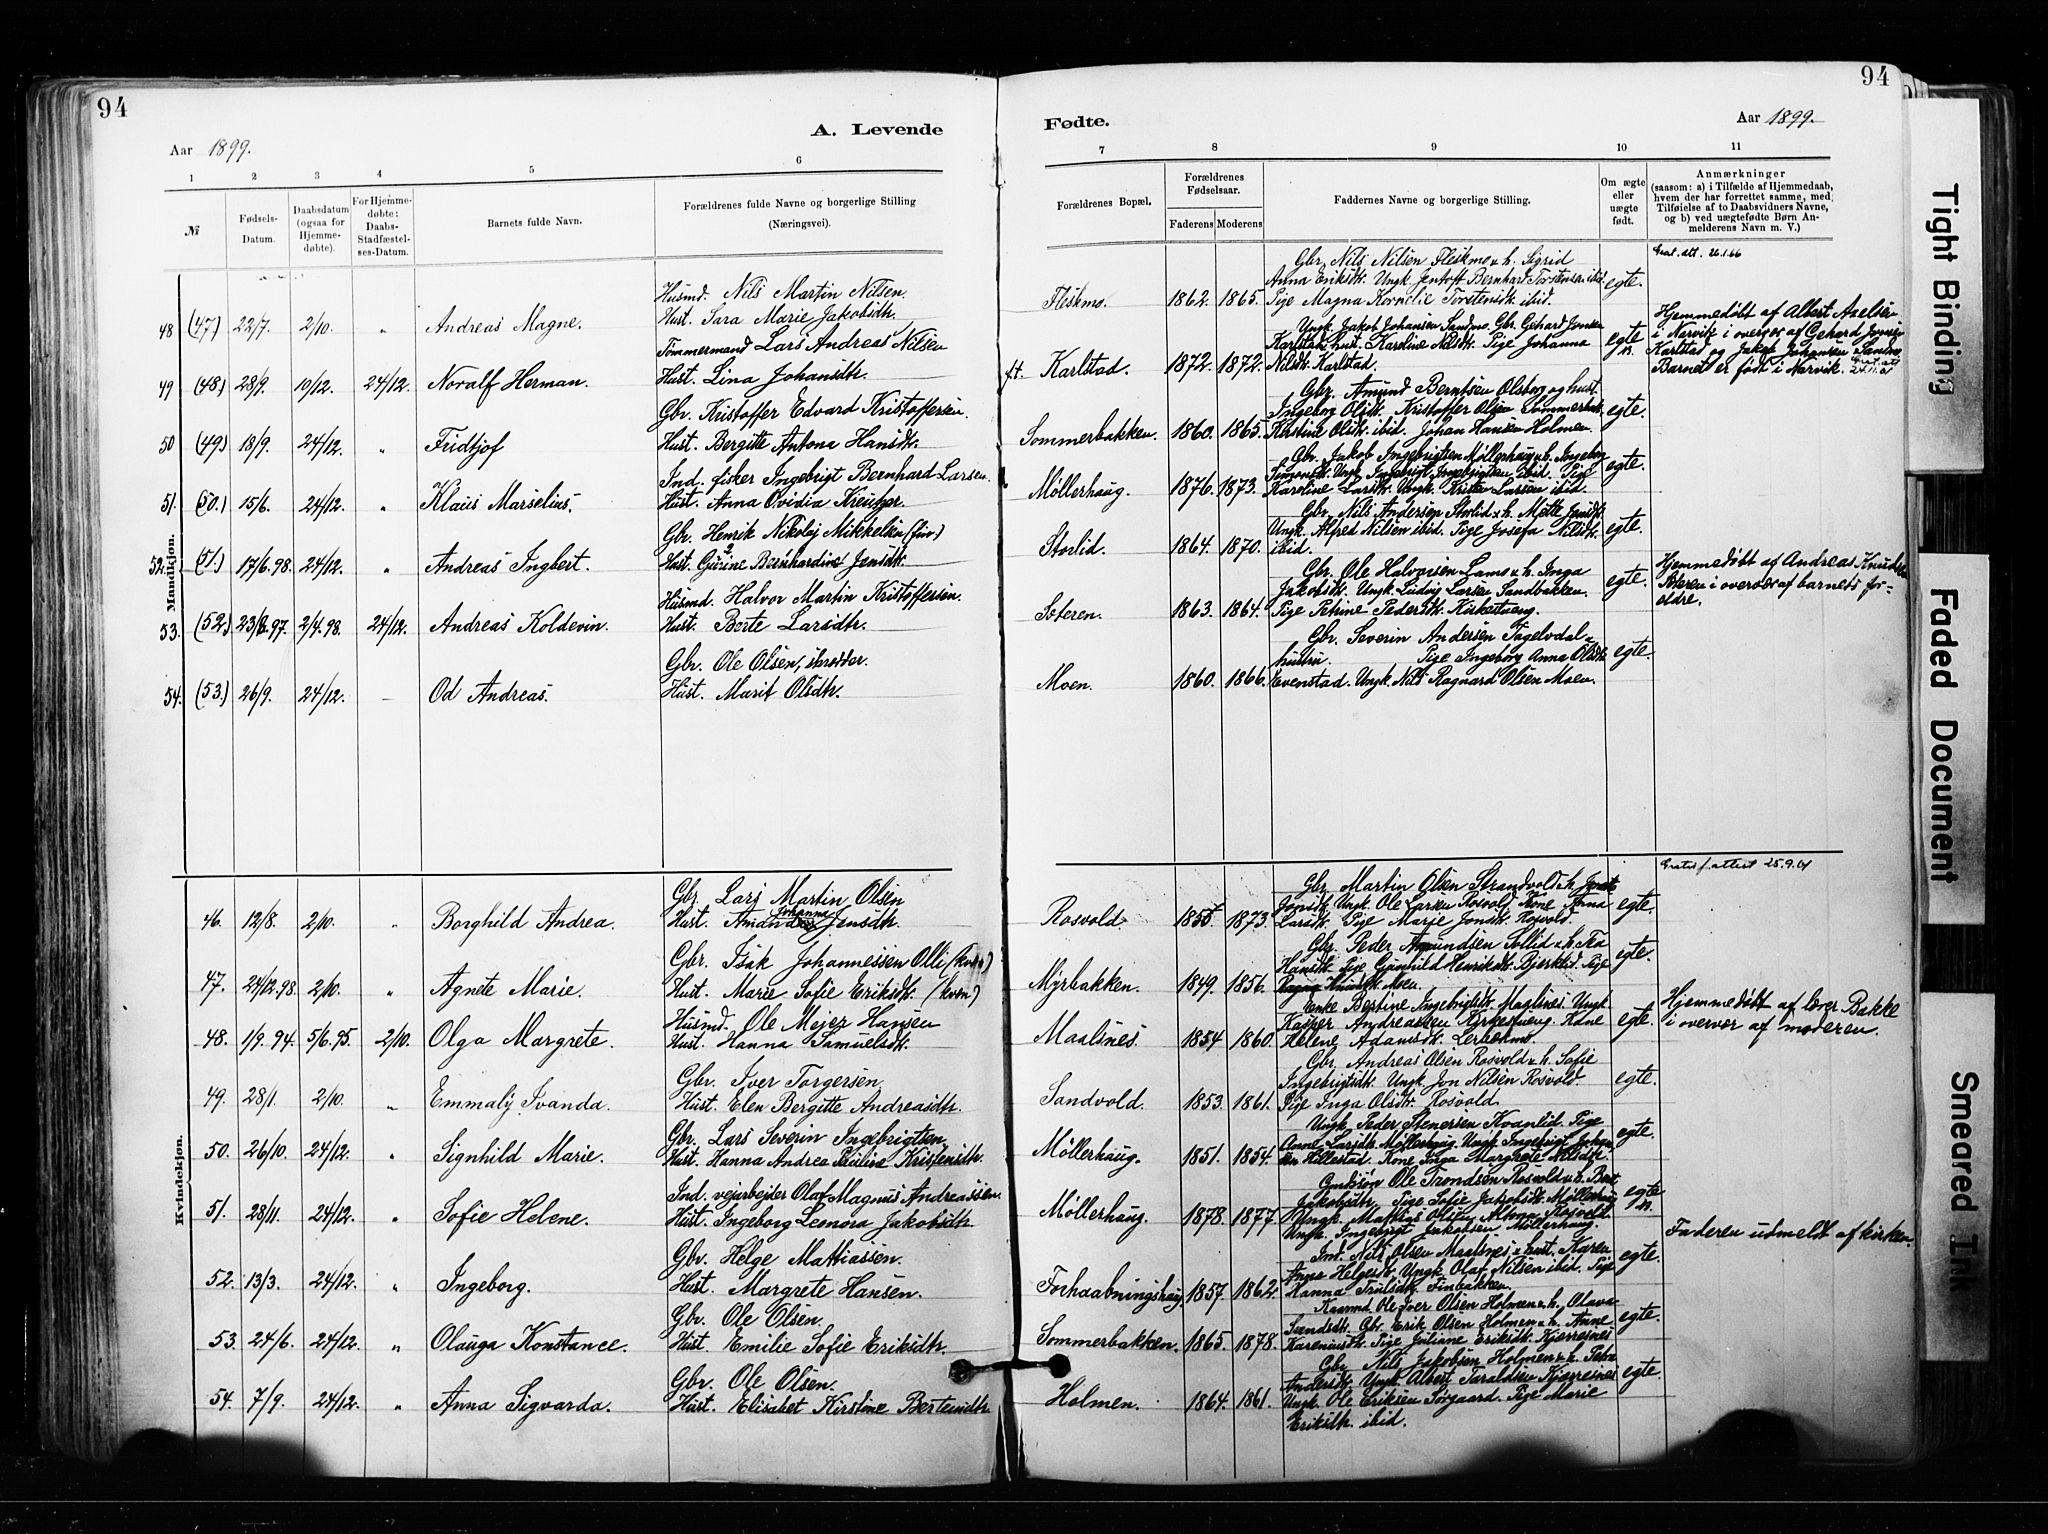 94
94
A. Levende
Fødte.
Aar 1899.
Aar 1899.
1
2
3
4
5
6
7
8
9
10
11
№
Fødsels-
Datum.
Daabsdatum
(ogsaa for
Hjemme-
døbte).
For Hjemme-
døbte:
Daabs-
Stadfæstel-
ses-Datum.
Barnets fulde Navn.
Forældrenes fulde Navne og borgerlige Stilling
(Næringsvei).
Forældrenes Bopæl.
Forældrenes
Fødselsaar.
Faderens Moderens
Faddernes Navne og borgerlige Stilling.
Om ægte
eller
uægte
født.
Anmærkninger
(saasom: a) i Tilfælde af Hjemmedaab,
hvem der har forrettet samme, med
Tilføielse af to Daabsvidners Navne,
og b) ved uægtefødte Børn An-
melderens Navn m. V.)
Mandkjøn.
Husmd. Nils Martin Nilsen.
48 (47) 22/7. 2/10. " Andreas Magne. Hust. Sara Marie Jakobsdtr.
Tømmermand Lars Andreas Nilsen
49 (48) 28/9. 10/12. 24/12. Noralf Herman. Hust. Lina Johansdtr.
Gbr. Kristoffer Edvard Kristoffersen.
50 (49) 18/9. 24/12. " Fridtjof Hust. Bergitte Antona Hansdtr.
Ind. fisker Ingebrigt Bernhard Larsen.
51. (50.) 15/6. 24/12. " Klaus Marselius. Hust. Anna Ovidia Kreutzer
Gbr. Henrik Nikolaj Mikkelsen (fin.)
52. (51.) 17/6.98. 24/12. " Andreas Ingbert. Hust. Gurine Bernhardine Jensdtr.
Husmd. Halvor Martin Kristoffersen.
53. (52.) 23/8.97. 2/4.98. 24/12. Andreas Koldevin. Hust. Berte Larsdtr.
Gbr. Ole Olsen, skrædder.
54. (53.) 26/9. 24/12. – Od Andreas. Hust. Marit Olsdtr.
Kvindekjøn.
Gbr. Lars Martin Olsen
Johanna
46. 12/8. 2/10. " Borghild Andrea. Hust. Amanda Jensdtr.
Gbr. Isak Johannessen Olli (kvæn)
47. 24/12.98. 2/10. " Agnete Marie. Hust. Marie Sofie Eriksdtr. (kvæn)
Husmd. Ole Mejer Hansen
48. 1/9.94. 5/6.95. 2/10. Olga Margrete. Hust. Hanna Samuelsdtr.
Gbr. Iver Torgersen.
49. 28/1. 2/10. " Emmaly Ivanda. Hust. Elen Bergitte Andreasdtr.
Gbr. Lars Severin Ingebrigtsen
50. 26/10. 24/12. " Signhild Marie. Hust. Hanna Andrea Paulina Kristensdtr.
Ind. vejarbejder Olaf Magnus Andreassen.
51. 28/11. 24/12. " Sofie Helene. Hust. Ingeborg Leonora Jakobsdtr.
Gbr. Helge Mathiassen.
52. 13/3. 24/12. " Ingeborg. Hust. Margrete Hansen.
Gbr. Ole Olsen.
53. 24/6. 24/12. " Olauga Konstance. Hust. Emilie Sofie Eriksdtr.
Gbr. Ole Olsen.
54. 7/9. 24/12. " Anna Sigvarda. Hust. Elisabet Kirstine Berteusdtr.
Grat. att. 26.1.66
Gbr. Nils Nilsen Fleskmo & h. Sigrid
Anna Eriksdtr. Ungk. Jentoft Bernhard Torstensen ibid.
Fleskmo. 1862. 1865. Pige Magna Kornelie Torstensdtr. ibid. egte.
Ungk. Jakob Johansen Sandmo. Gbr. Gehard Jensen
Karlstad. hust. Karoline Nilsdtr. Pige Johanna
ft. Karlstad. 1872. 1872. Nilsdtr. Karlstad. egte
Hjemmedøbt af Albert Axelsen
i Narvik i overvær af Gehard Jensen
Karlstad og Jakob Johansen Sandmo
Barnet er født i Narvik.
Gbr. Amund Berntsen Olsborg og hust.
Ingeborg Olsdtr. Kristoffer Olsen Sommerbak.
Sommerbakken. 1860. 1865. Kirstine Olsdtr. ibid. Johan Hansen Holmen. egte.
Gbr. Jakob Ingebrigtsen Møllerhaug & h. Ingeborg
Simonsdtr. Ungk. Ingebrigt Ingebrigtsen ibid. Pige
Møllerhaug. 1876. 1873. Karoline Larsdtr. Ungk. Kristen Larsen ibid. egte.
Gbr. Nils Andersen Storlid & h. Mette Jensdtr.
Ungk. Alfred Nilsen ibid. Pige Josefa Nilsdtr.
Storlid. 1864. 1870. ibid. egte.
Gbr. Ole Halvorsen Lamo & h. Inga
Jakobsdtr. Ungk. Ludvig Larsen Sandbakken.
Soteren. 1863. 1864. Pige Petrine Pedersdtr. Kirkestueng. egte.
Hjemmedøbt af Andreas Knudsen
Soteren i overvær af barnets for-
ældre.
Gbr. Severin Andersen Fagelvdal &
hustru. Pige Ingeborg Anna Olsdtr.
Moen. 1860. 1866. Evenstad. Ungk. Nils Ragnard Olsen Moen. egte.
Gratis attest 25.9.61
Gbr. Martin Olsen Strandvold & h.
Jonsdtr. Ungk. Ole Larsen Rosvold. Kone Anna
Rosvold. 1855. 1873. Larsdtr. Pige Marie Jonsdtr. Rosvold. egte.
Gbr. Peder Amundsen Sollid & h. Tea
Hansdtr. Pige Gunhild Henriksdtr. Bjerklid. Pige
Myrbakken. 1849. 1856. Moen. egte.
Enke Bertine Ingebrigtsdtr. Maalsnes. Ungk.
Kasper Andreassen Kirkestueng. Kone
Maalsnes. 1854 1860. Helene Adamsdtr. Lerbekmo. egte.
Hjemmedøbt af Iver Bakke
i overvær af moderen.
Gbr. Andreas Olsen Rosvold & h. Sofie
Ingebrigtsdtr. Ungk. Jon Nilsen Rosvold
Sandvold. 1853. 1861. Pige Inga Olsdtr. Rosvold. egte.
Ungk. Peder Stenersen Kvanlid. Pige
Anne Larsdtr. Møllerhaug. Ungk. Ingebrigt Johan-
Møllerhaug. 1851. 1854. sen Hillestad. Kone Inga Margrete Nilsdtr. egte.
Ole Trondsen Rosvold & h. Berit
Jakobsdtr. Pige Sofie Jakobsdtr. Møllerhaug
Møllerhaug. 1878. 1877. Ungk. Mathias Olsen Rosvold
Ungk. Ingebrigt Jakobsen Møllerhaug. egte
Ind. Nils Olsen Maalsnes & hust. Karen
Anna Helgesdtr. Ungk. Olaf Nilsen ibid. Pige
Forhaabningshaug. 1857. 1862. Hanna Trulsdtr. Finbakken. egte.
Faderen udmeldt af kirken.
Kaarmd. Ole Iver Olsen Holmen & h. Olava
Svendsdtr. Gbr. Erik Olsen Holmen & h. Anne
Sommerbakken. 1865. 1878. Kareniusdtr. Pige Juliane Eriksdtr. Kjerresnes egte.
Gbr. Nils Jakobsen Holmen & h. Petra
Andersdtr. Ungk. Albert Taraldsen Kjerresnes
Holmen. 1864. 1861. Ungk. Ole Eriksen Sørgaard. Pige Marie
Eriksdtr. ibid. egte.
Tight Binding
Faded Document
Smeared Ink